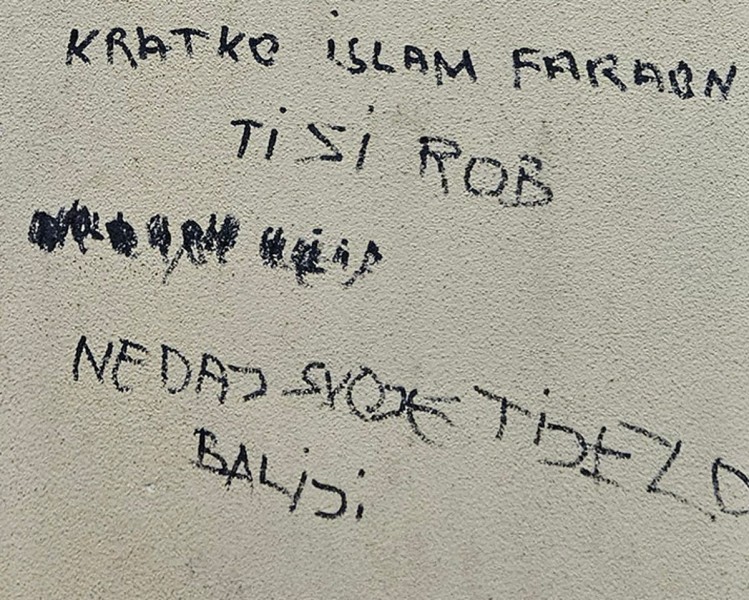 KRATKO iSLAM FARAON
Ti Si ROB
NEDAJ SVOJE TiJELO
BALiJi